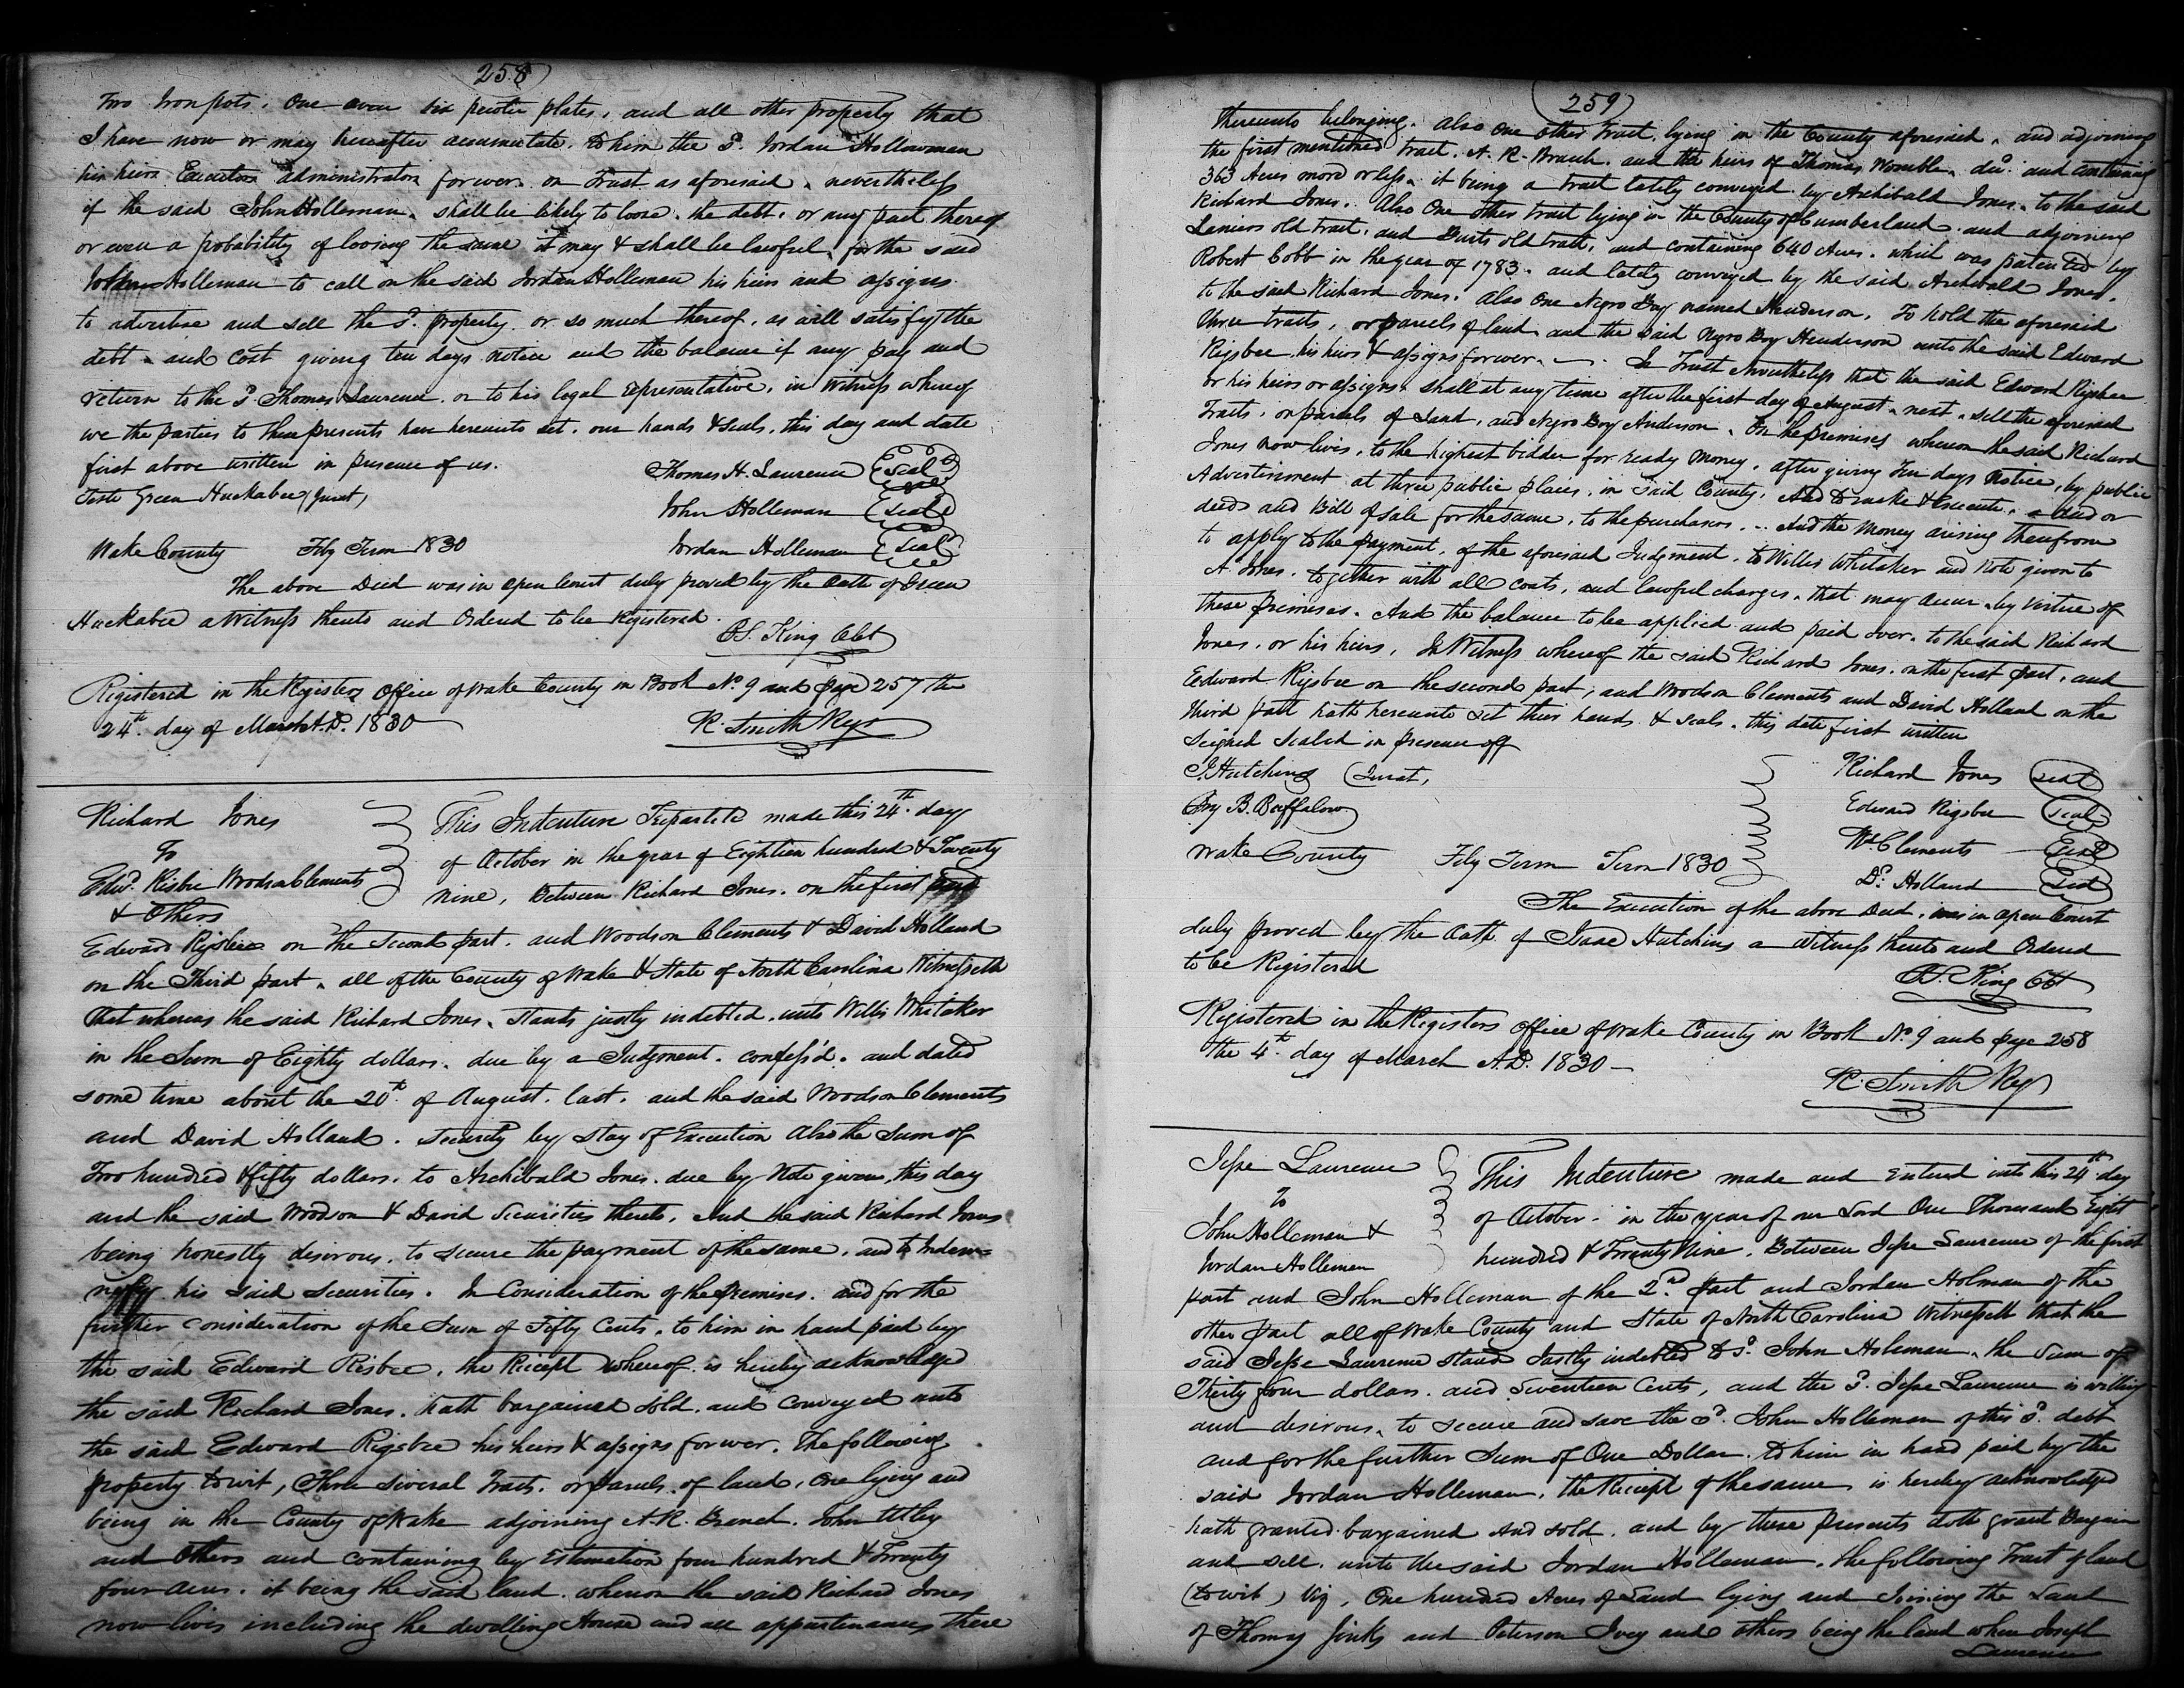 258
Two Iron pots, One oven six pewter plates, and all other property that
I have now or may hereafter accumulate. to him the sd. Jordan Hollowman
his heirs Executors administrators forever. on Trust as aforesaid, nevertheless
if the said John Holleman, shall be likely to loose, the debt, or any part thereof
or even a probability of loosing the same it may & shall be lawful, for the said
John Holleman to call on the said Jordan Holleman his heirs and assigns.
to advertise and sell the sd. property, or so much thereof, as will satisfy the
debt, and cost giving ten days notice and the balance if any pay and
return to the sd. Thomas Laurence, or to his legal representative, in Witness whereof
we the parties to these presents have hereunto set, our hands & seals, this day and date
first above written in presence of us.
Thomas H. Laurence (Seal)
Teste Green Huckabee (Jurat)
John Holleman (Seal)
Wake County Feby Term 1830
Jordan Holleman (Seal)
The above Deed was in open Court duly proved by the Oath of Green
Huckabee a Witness thereto and Ordered to be Registered.
B.S. King Clk
Registered in the Registers Office of Wake County in Book No. 9 and page 257 the
24th. day of March A.D. 1830
R. Smith Regr
Richard Jones
To
Edwd. Risbie Woodson Clements
& Others
This Indenture Tripartite made this 24th. day
of October in the year of Eighteen hundred & Twenty
nine, Between Richard Jones. on the first part
Edward Rigsbee on the second part. and Woodson Clements & David Holland
on the Third part, all of the County of Wake & State of North Carolina Witnesseth
that whereas the said Richard Jones, stands justly indebted, unto Willis Whitaker
in the Sum of Eighty dollars, due by a Judgment. confess'd. and dated
some time about the 20th. of August. last. and the said Woodson Clements
and David Holland. security by stay of Execution Also the Sum of
Two hundred & fifty dollars, to Archibald Jones. due by Note given, this day
and the said Woodson & David Securities thereto, And the said Richard Jones
being honestly desirous, to secure the payment of the same, and to Indem=
nify his said securities. In Consideration of the premises. and for the
further consideration of the Sum of Fifty Cents, to him in hand paid by
the said Edward Risbee, the Receipt whereof is hereby acknowledged
the said Richard Jones. hath bargained sold. and conveyed unto
the said Edward Rigsbee his heirs & assigns forever. The following
property to wit, Three several Tracts. or parcels. of land, One lying and
being in the County of Wake adjoining A.R. Branch. John Utley
and Others and containing by Estimation four hundred & Twenty
four acres. it being the said land. whereon the said Richard Jones
now lives including the dwelling House and all appurtenances there
259
thereunto belonging. Also One other tract, lying in the County aforesaid, and adjoining
the first mentioned tract. A. R. Branch. and the heirs of Thomas Womble, decd. and containing
363 Acres more or less, it being a tract lately conveyed by Archibald Jones, to the said
Richard Jones. Also One other tract lying in the County of Cumberland. and adjoining
Laniers old tract, and old tract, and containing 640 Acres. which was patented by
Robert Cobb in the year of 1783. and lately conveyed by the said Archibald Jones.
to the said Richard Jones. Also One Negro Boy named Henderson, To hold the aforesaid
three tracts, or parcels of land and the said Negro Boy Henderson unto the said Edward
Rigsbee his heirs & assigns forever. In Trust Nevertheless that the said Edward Rigsbee
or his heirs or assigns, shall at any time after the first day of August, next, sell the aforesaid
Tracts, or parcels of Land, and Negro Boy Anderson, On the premises whereon the said Richard
Jones now lives, to the highest bidder for ready Money, after giving Ten days Notice, by public
Advertisement at three public places, in said County, And to make & Execute, a deed or
deeds and Bill of sale for the same, to the purchasers. And the Money arising therefrom
to apply to the payment, of the aforesaid Judgment, to Willis Whitaker and Note given to
A. Jones. together with all costs, and lawful charges, that may accrue, by virtue of
these premises. And the balance to be applied and paid over. to the said Richard
Jones, or his heirs, In Witness whereof the said Richard Jones. on the first part, and
Edward Rigsbee on the second part, and Woodson Clements and David Holland on the
third part hath hereunto set their hands & seals, this date first written
Seigned Sealed in presence off
Richard Jones (seal)
I. Hutchins (Jurat)
Edward Rigsbee (seal)
B. Buffalow
Wd. Clements (Seal)
Wake County Feby Term Term 1830
Dd. Holland (Seal)
The Execution of the above Deed, was in open Court
duly proved by the Oath of Isaac Hutchins a witness thereto and Ordered
to be Registered
B.S. King Clk
Registered in the Registers Office of Wake County in Book No. 9 and page 258
the 4th. day of March A.D. 1830
R. Smith Regr
Jesse Laurence
To
John Holleman &
Jordan Holleman
This Indenture made and Entered into this 24th. day
of October. in the year of our Lord One Thousand Eight
hundred & Twenty Nine, Between Jesse Laurence of the first
part and John Holleman of the 2nd. part and Jordan Holman of the
other part all of Wake County and State of North Carolina Witnesseth that the
said Jesse Laurence stands Justly indebted to sd. John Holeman, the Sum of
Thirty four dollars and Seventeen Cents, and the sd. Jesse Laurence is willing
and desirous, to secure and save the sd. John Holleman of this sd. debt
and for the further Sum of One Dollar, to him in hand paid by the
said Jordan Holleman, the Receipt of the same is hereby acknowledged
hath granted bargained And sold. and by these presents doth grant Bargain
and sell. unto the said Jordan Holleman, the following Tract of land
(to wit) Viz, One hundred Acres of Land lying and Joining the Land
of Thomas Jinks and Peterson Ivey and others being the land where Joseph
Laurence